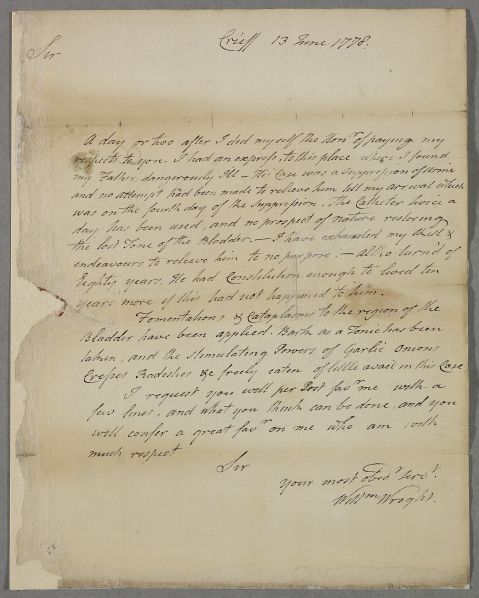 Crieff 13 June 1778.
Sir
A day or two after I did myself the Honr. of paying my
respects to you. I had an express, to this place where I found
my Father dangerously Ill – His Case was a Suppression of Urine
and no attempt had been made to relieve him till my arrival which
was on the fourth day of the Suppression. The Catheter twice a
day has been used, and no prospect of Nature restoring
the lost Tone of the Bladder. – I have exhausted my skill &
endeavours to relieve him to no purpose. – Altho turn'd of
Eighty years. He had Constitution enough to lived ten
years more if this had not happened to him.
Fomentations & Cataplasms to the region of the
Bladder have been applied. Bark as a Tonic has been
taken, and the stimulating Powers of Garlic Onions
Cresses Radeshes &c freely eaten of little avail in this Case
I request you will per Post favr me with a
few lines, and what you think can be done, and you
will confer a great favr on me who am with
much respect
Sir
your most obedt. servt.
Willm Wright.